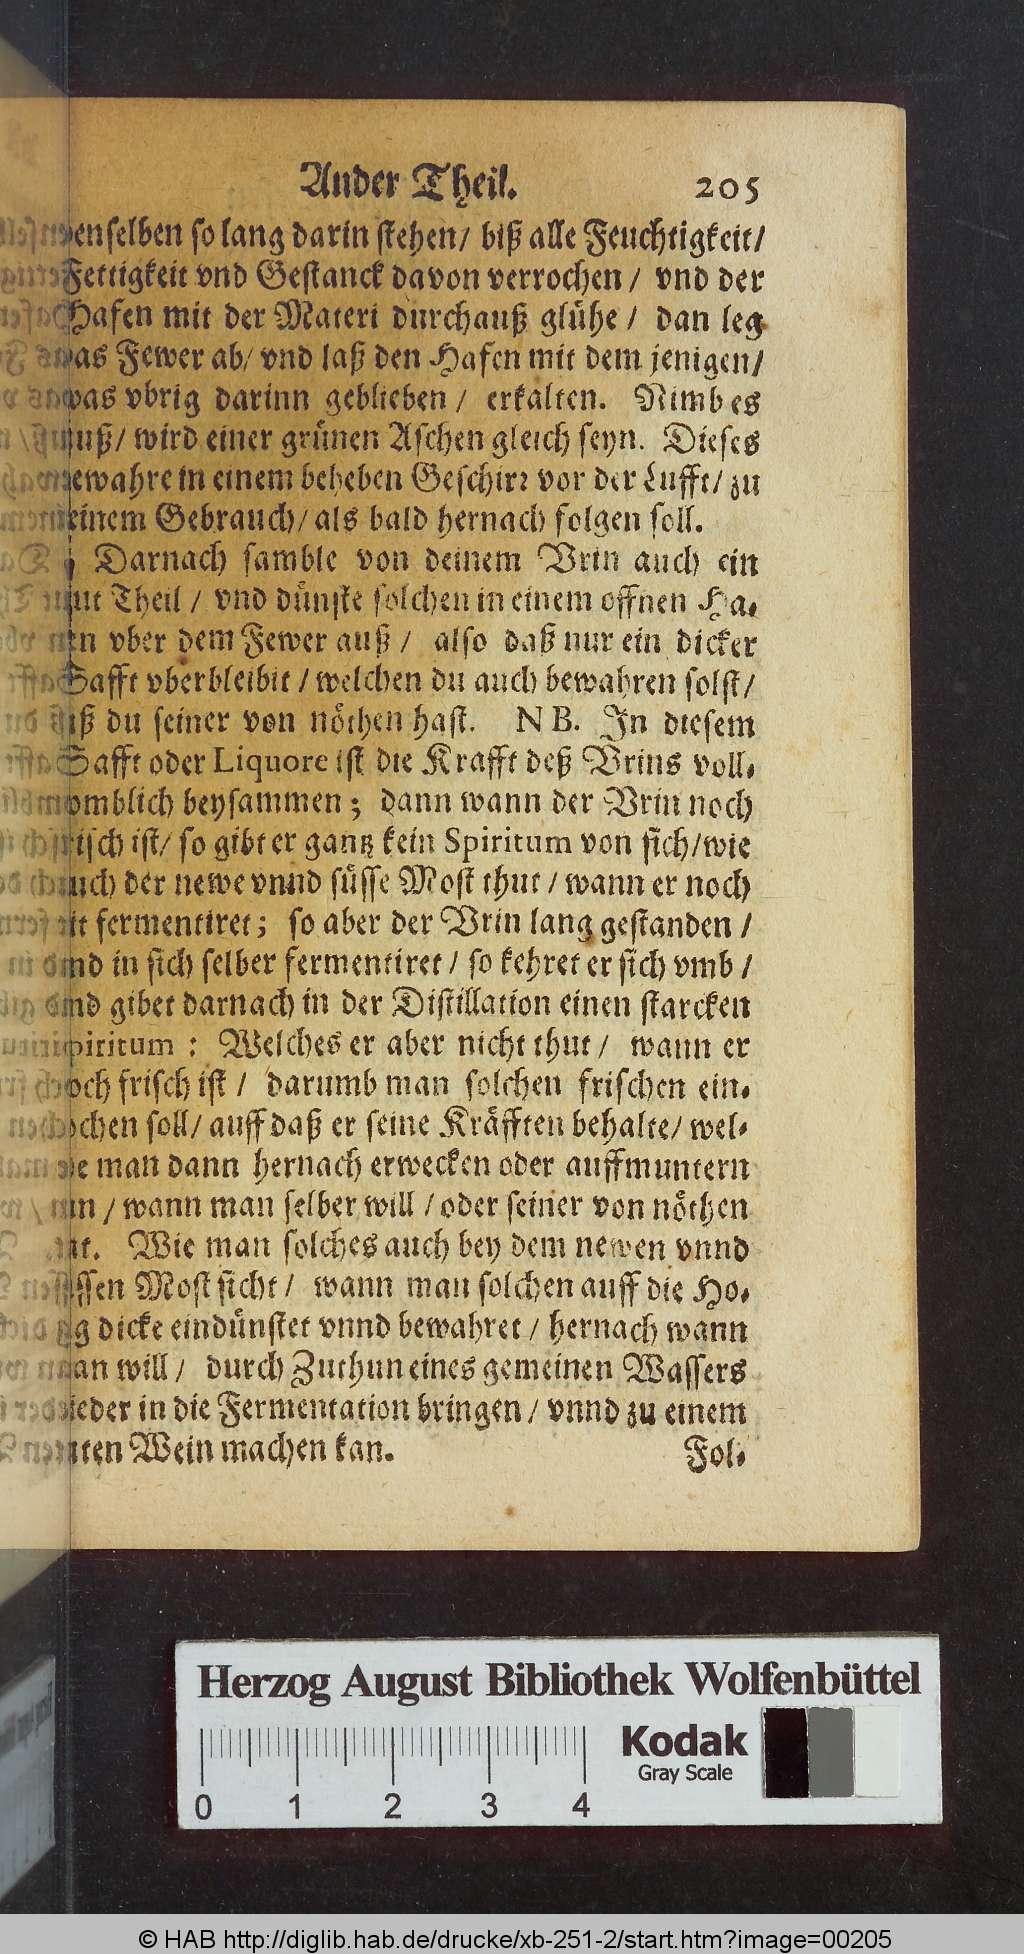 Ander Theil. 205
denselben so lang darin stehen/ biß alle Feuchtigkeit/
Fettigkeit vnd Gestanck davon verrochen / vnd der
Hafen mit der Materi durchauß glühe / dan leg
das Fewer ab/ vnd laß den Hafen mit dem jenigen/
was vbrig darinn geblieben / erkalten. Nimb es
auß/ wird einer grünen Aschen gleich seyn. Dieses
bewahre in einem beheben Geschirr vor der Lufft/ zu
einem Gebrauch/ als bald hernach folgen soll.
Darnach samble von deinem Vrin auch ein
gut Theil / vnd dünste solchen in einem offnen Ha-
fen vber dem Fewer auß / also daß nur ein dicker
Safft vberbleibit / welchen du auch bewahren solst/
biß du seiner von nöthen hast. NB. In diesem
Safft oder Liquore ist die Krafft deß Vrins voll-
komblich beysammen; dann wann der Vrin noch
frisch ist/ so gibt er gantz kein Spiritum von sich/ wie
auch der newe vnnd süsse Most thut / wann er noch
nit fermentiret; so aber der Vrin lang gestanden /
vnd in sich selber fermentiret / so kehret er sich vmb /
vnd gibet darnach in der Distillation einen starcken
Spiritum : Welches er aber nicht thut / wann er
noch frisch ist / darumb man solchen frischen ein-
kochen soll/ auff daß er seine Kräfften behalte/ wel-
che man dann hernach erwecken oder auffmuntern
kan / wann man selber will / oder seiner von nöthen
hat. Wie man solches auch bey dem newen vnnd
süssen Most sicht / wann man solchen auff die Ho-
nig dicke eindünstet vnnd bewahret / hernach wann
man will / durch Zuthun eines gemeinen Wassers
wieder in die Fermentation bringen / vnnd zu einem
guten Wein machen kan. Fol-
Herzog August Bibliothek Wolfenbüttel
Kodak
Gray Scale
0 1 2 3 4
© HAB http://diglib.hab.de/drucke/xb-251-2/start.htm?image=00205